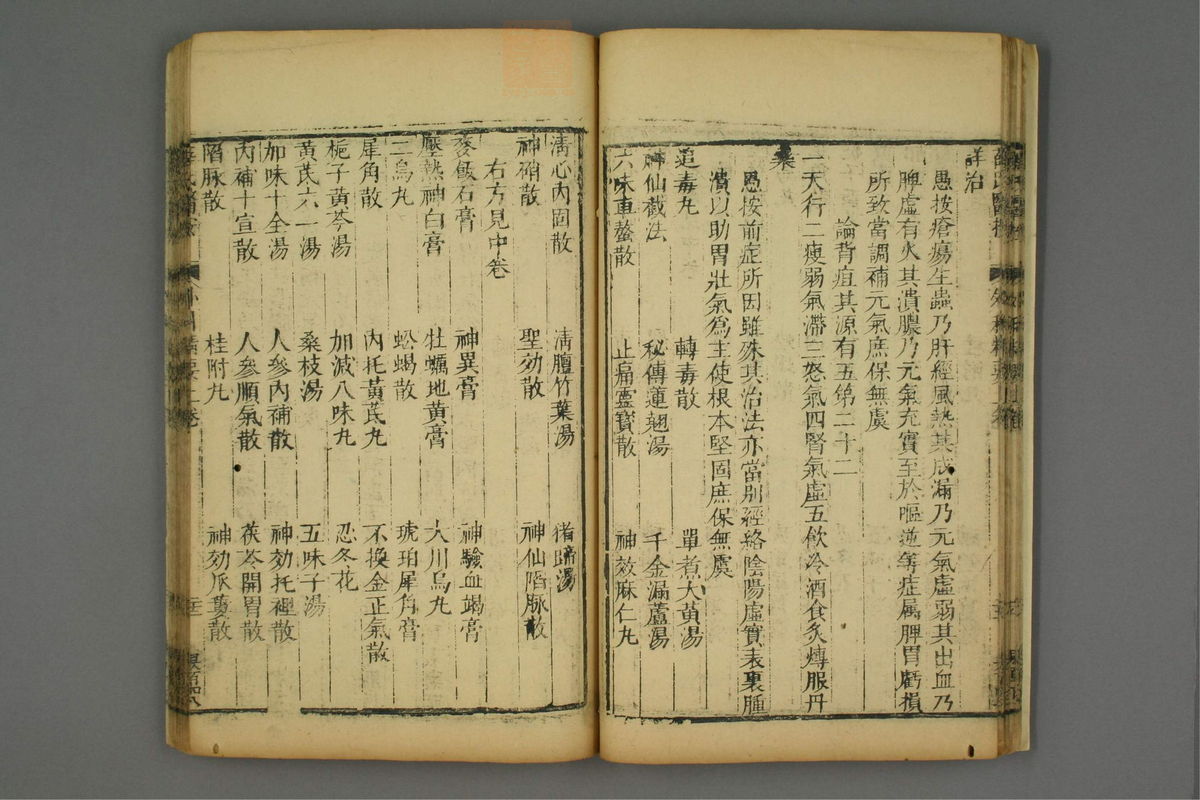 詳治
愚按瘡瘍生蟲乃肝經風熱其成漏乃元氣虛弱其出血乃
脾虛有火其潰膿乃元氣充實至於嘔逆等症属脾胃虧損
所致當調補元氣庶保無虞
論背疽其源有五第二十二
一天行二瘦弱氣滯三怒氣四腎氣虛五飲冷酒食炙煿服丹
藥
愚按前症所因雖殊其治法亦當別經絡陰陽虛實表裏腫
潰以助胃壯氣爲主使根本堅固庶保無虞
追毒丸 轉毒散 單煮大黄湯
神仙截法 秘傳蓮翹湯 千金漏蘆湯
六味車螯散 止痛靈寶散 神效麻仁丸
清心內固散 清膻竹葉湯 猪蹄湯
神硝散 聖効散 神仙䧟脉散
右方見中卷
麥飯石膏 神異膏 神驗血竭膏
壓熱神白膏 牡蠣地黄膏 大川烏丸
三烏丸 蚣蝎散 琥珀犀角膏
犀角散 內托黃芪丸 不換金正氣散
梔子黄芩湯 加減八味丸 忍冬花
黄芪六一湯 桑枝湯 五味子湯
加味十全湯 人參內補散 神効托裡散
內補十宣散 人參順氣散 茯苓開胃散
䧟脉散 桂附丸 神効瓜蔞散